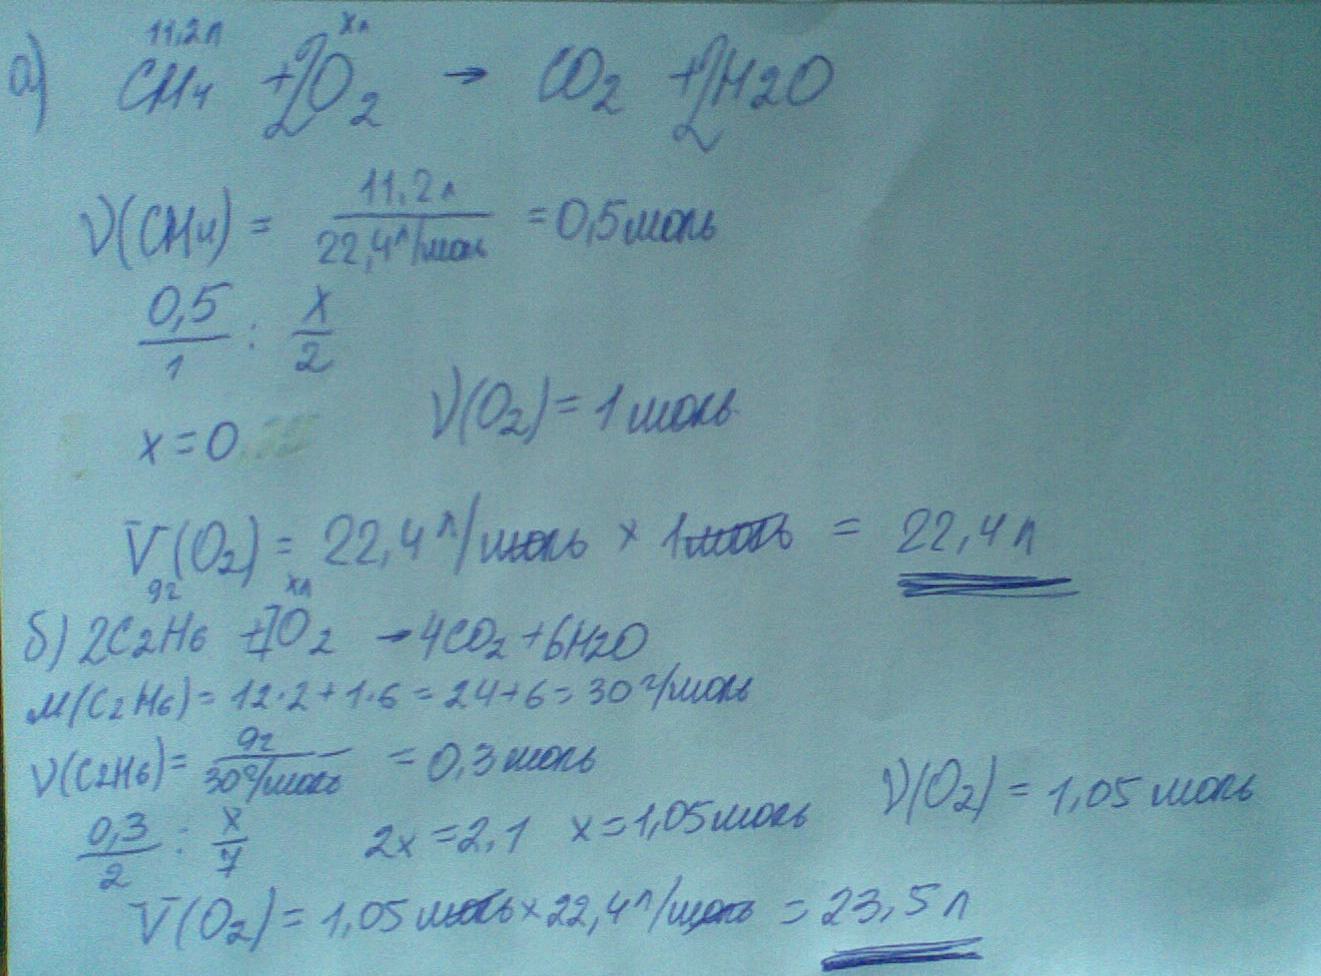 11,2л xл
а) CH4 + 2O2 → CO2 + 2H2O
ν(CH4) = 11,2л / 22,4л/моль = 0,5моль
0,5/1 : x/2
x = 0 ν(O2) = 1моль
V(O2) = 22,4л/моль × 1моль = 22,4л
9г xл
б) 2C2H6 + 7O2 → 4CO2 + 6H2O
M(C2H6) = 12·2 + 1·6 = 24 + 6 = 30г/моль
ν(C2H6) = 9г / 30г/моль = 0,3моль
ν(O2) = 1,05моль
0,3/2 : x/7 2x = 2,1 x = 1,05моль
V(O2) = 1,05моль × 22,4л/моль = 23,5л